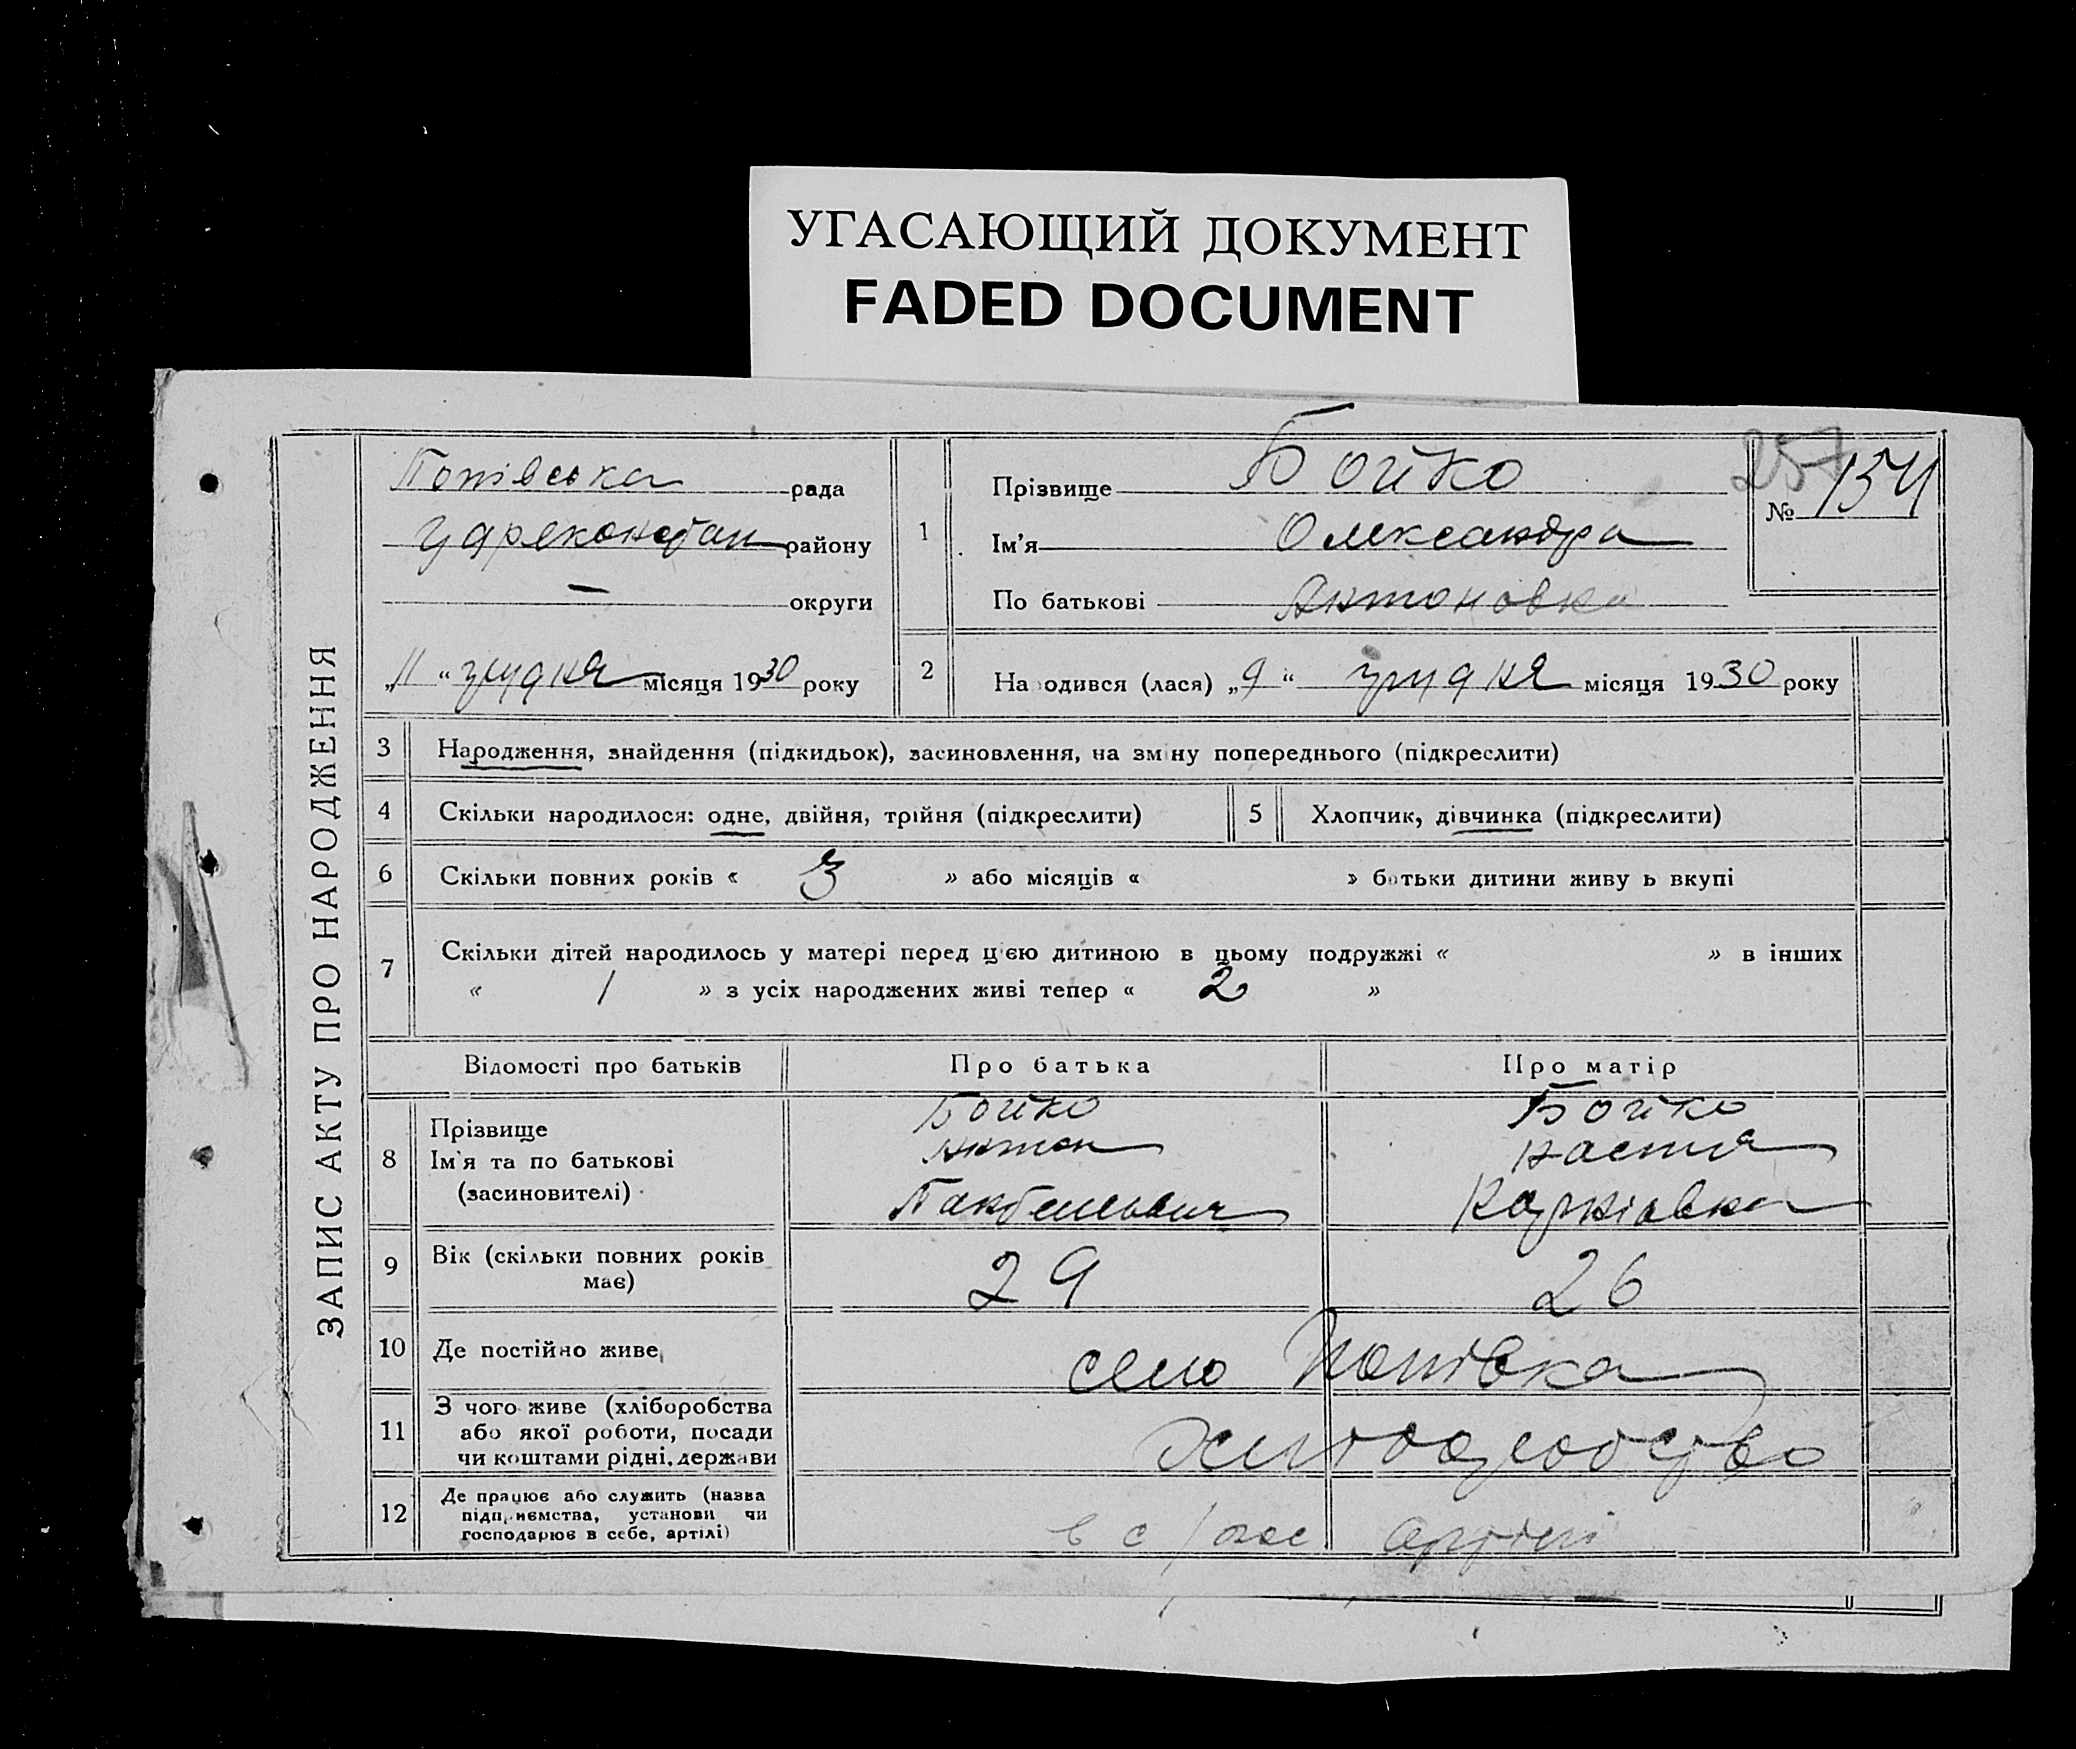 УГАСАЮЩИЙ ДОКУМЕНТ
FADED DOCUMENT
ЗАПИС АКТУ ПРО НАРОДЖЕННЯ
Попівська рада
району
— округи
„11“ грудня місяця 1930 року
257
№ 154
1
Прізвище Бойко
Ім'я Олександра
По батькові Антоновна
2 Народився (лася) „9“ грудня місяця 1930 року
3 Народження, знайдення (підкидьок), засиновлення, на зміну попереднього (підкреслити)
4 Скільки народилося: одне, двійня, трійня (підкреслити) 5 Хлопчик, дівчинка (підкреслити)
6 Скільки повних років « 3 » або місяців « » батьки дитини живуть вкупі
7 Скільки дітей народилось у матері перед цією дитиною в цьому подружжі « » в інших
« 1 » з усіх народжених живі тепер « 2 »
Відомості про батьків Про батька Про матір
8 Прізвище Бойко Бойко
Ім'я та по батькові Антон Настя
(засиновителі)
9 Вік (скільки повних років має) 29 26
10 Де постійно живе село Попівка
11 З чого живе (хліборобства
або якої роботи, посади
чи коштами рідні, держави
12 Де працює або служить (назва
підприємства, установи чи
господарює в себе, артілі)
в с/гос артілі